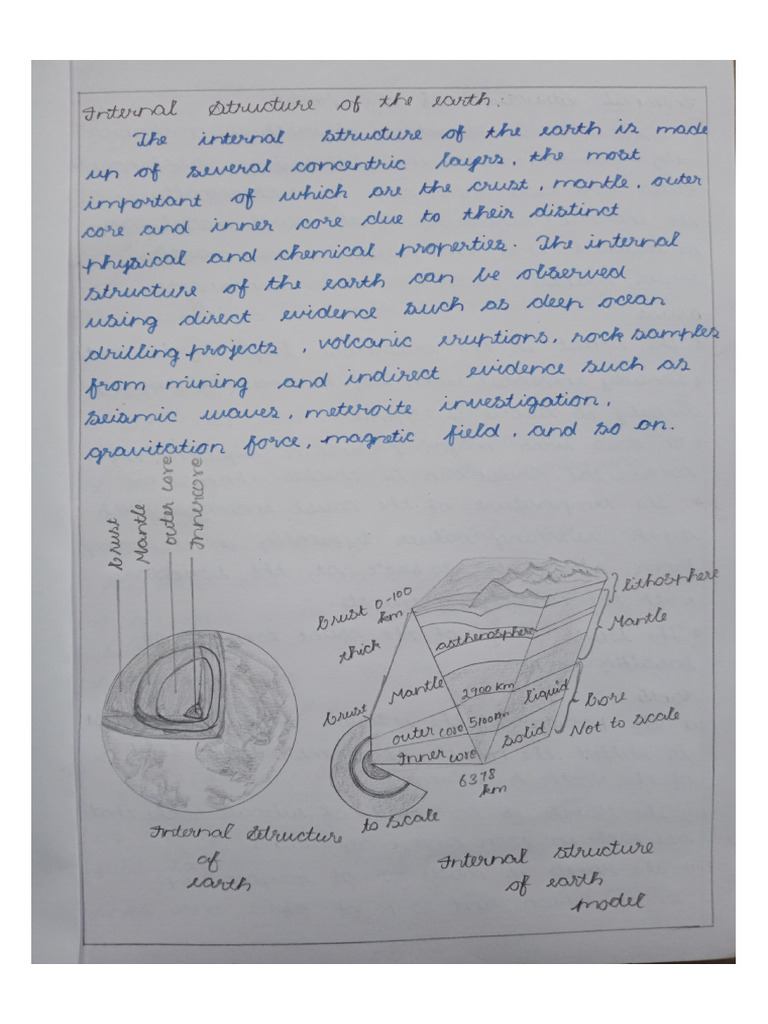 Internal Structure of the earth:
The internal structure of the earth is made
up of several concentric layers, the most
important of which are the crust, mantle, outer
core and inner core due to their distinct
physical and chemical properties. The internal
structure of the earth can be observed
using direct evidence such as deep ocean
drilling projects, volcanic eruptions, rock samples
from mining and indirect evidence such as
seismic waves, meteroite investigation,
gravitation force, magnetic field, and so on.
Crust
Mantle
outer core
Inner core
Internal Structure
of
earth
Crust 0-100
km
thick
lithosphere
asthenosphere
Mantle
Mantle
2900 km
liquid
Core
Crust
outer core 5100km
Not to scale
Inner core
solid
6378
km
to scale
Internal structure
of earth
model